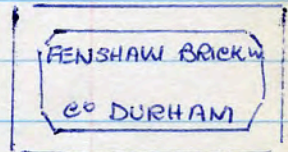 FENSHAW BRICK W
Co DURHAM